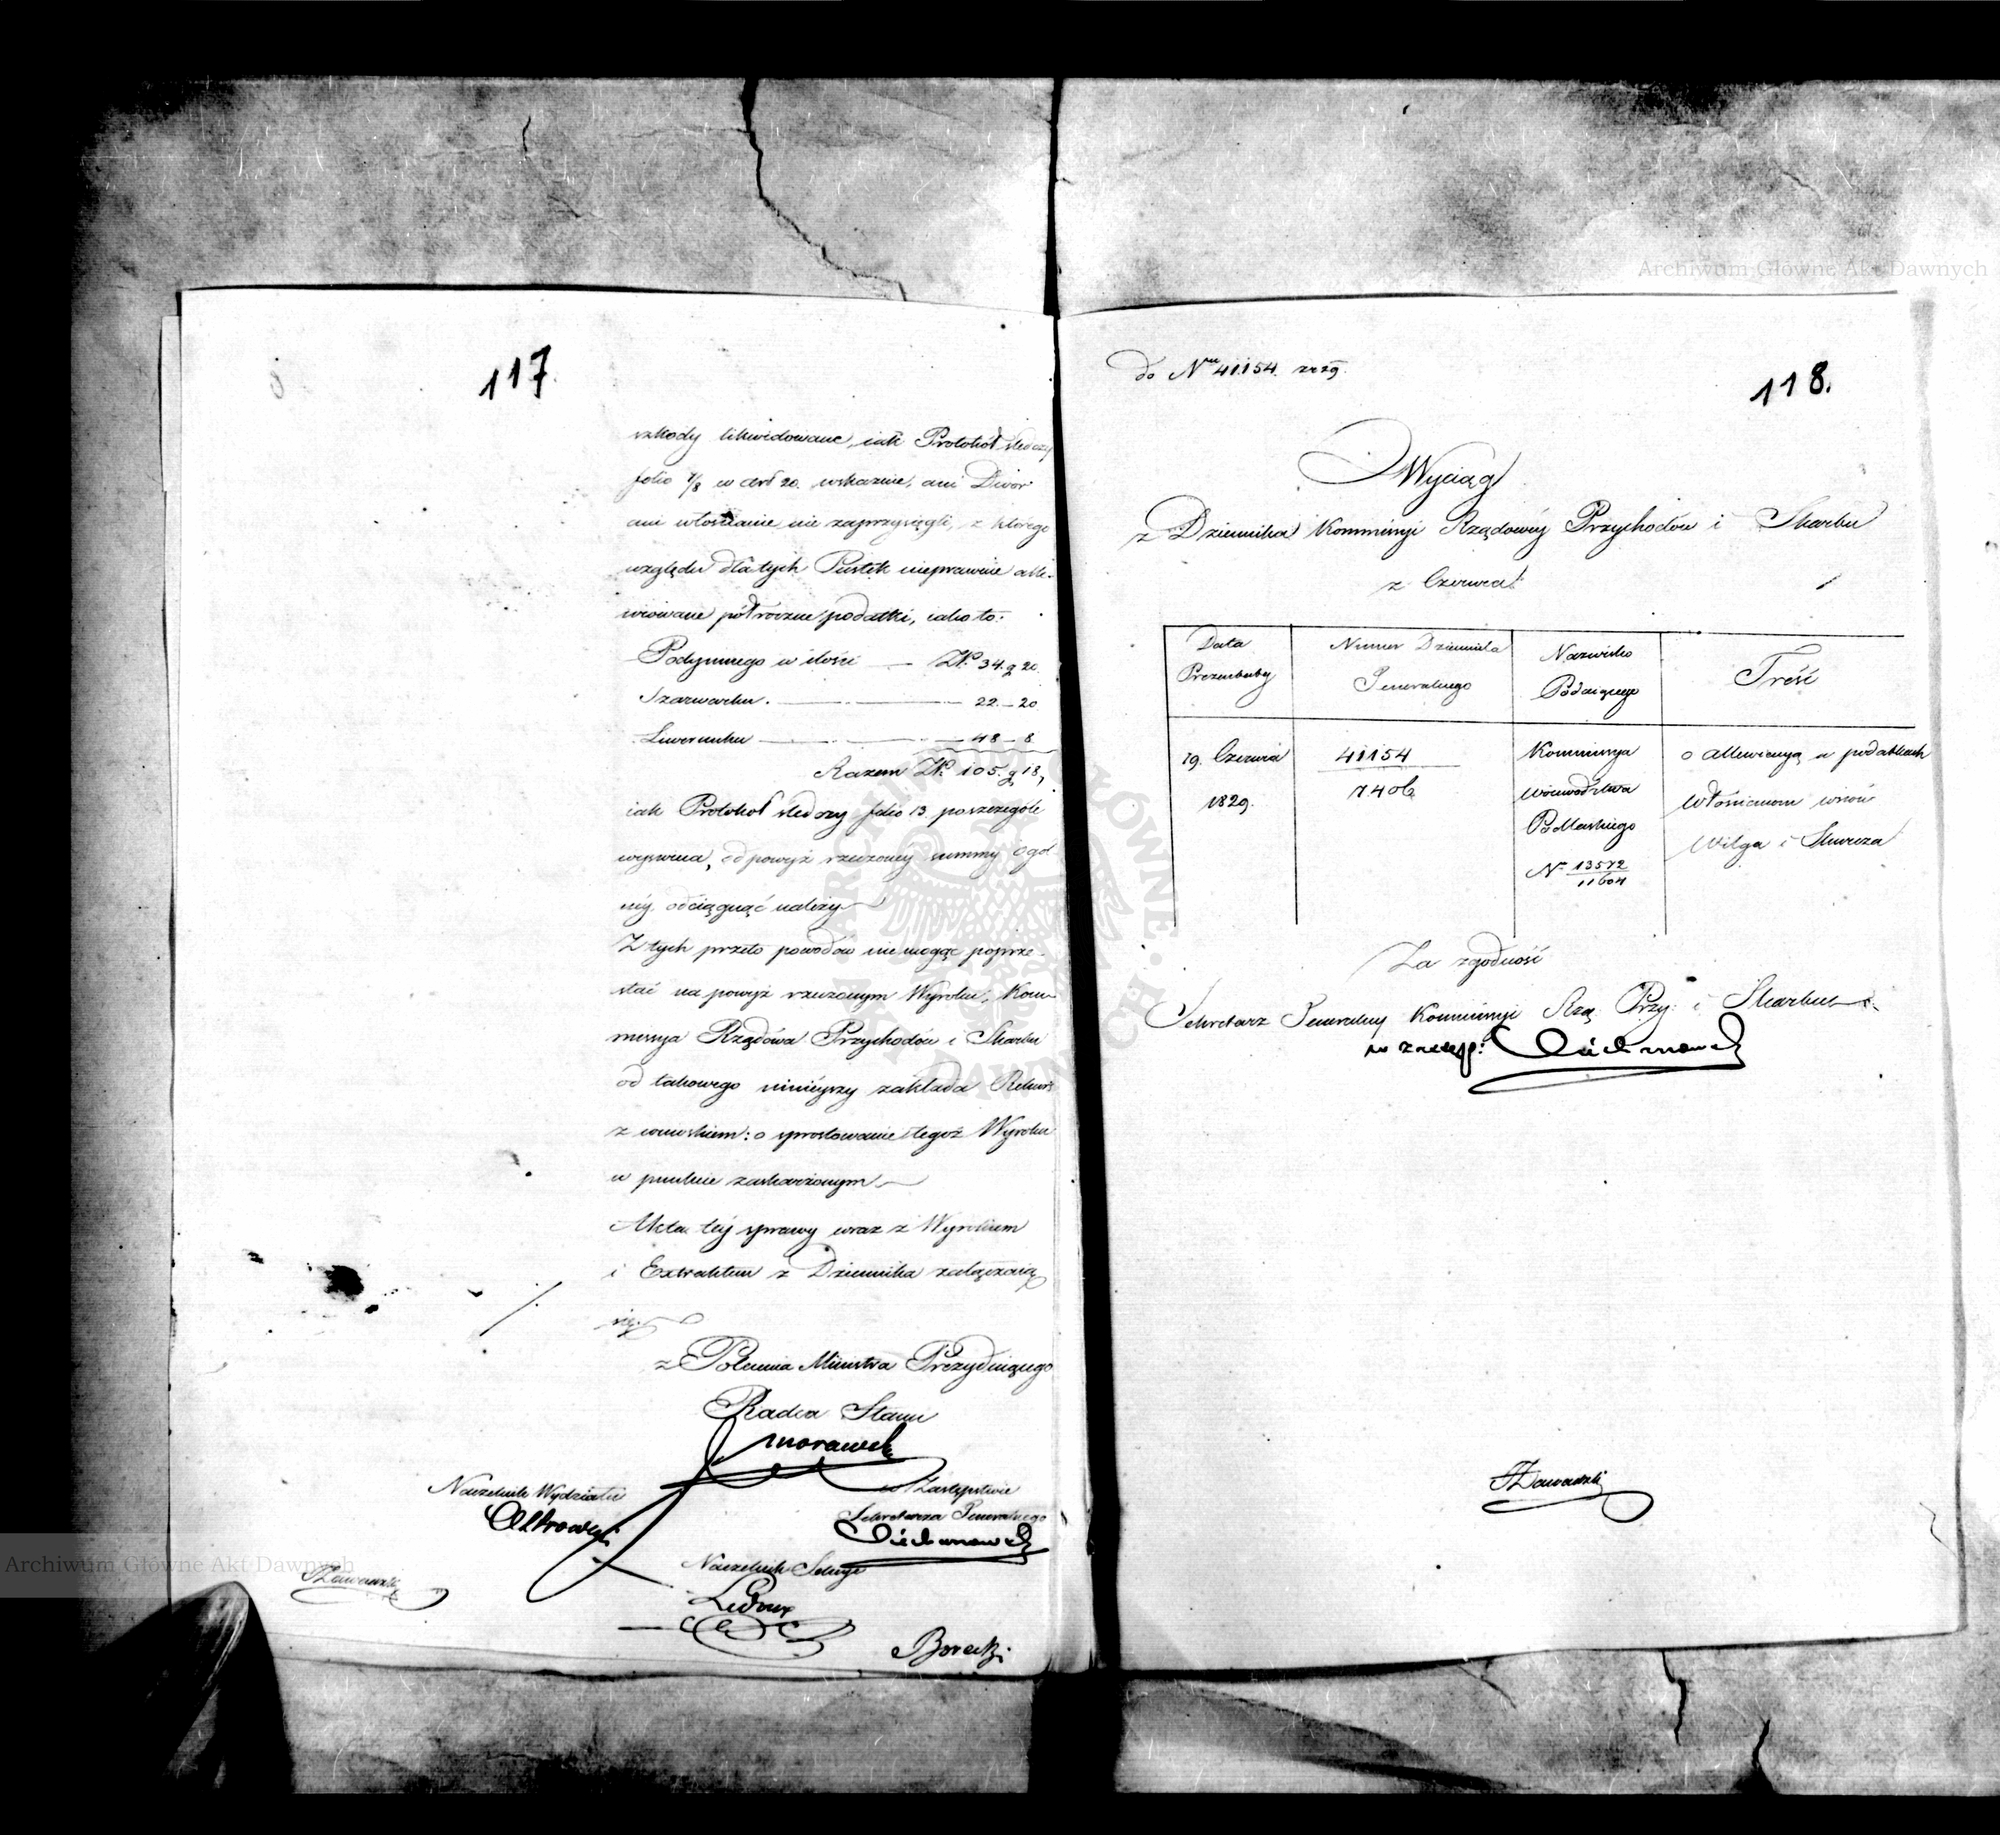 117.
szkody likwidowane, iak Protokół śledczy
folio 7/8 w art 20. wskazuie, ani Dwór
ani włościanie nie zaprzysięgli, z którego
względu dla tych Pustek nieprawnie alle-
wiowane półroczne podatki, iako to:
Podymnego w ilości — Zł. 34. g 20.
Szarwarku. — 22. — 20
Liwerunku — 48 — 8
Razem Zł. 105. g 18,
iak Protokół śledczy folio 13. poszczególe
wyświeca, od powyż rzeczoney summy ogól
néy odciągnąć należy
Z tych przeto powodów nie mogąc poprze-
stać na powyż rzeczonym Wyroku, Kom-
missya Rządowa Przychodów i Skarbu
od takowego ninieyszy zakłada Rekurs
z wnioskiem: o sprostowanie tegoż Wyroku
w punkcie zaskarżonym
Akta téy sprawy wraz z Wyrokiem
i Extraktem z Dziennika załączaią
się.
z Polecenia Ministra Prezyduiącego
Radca Stanu
Morawski
Naczelnik Wydziału
w Zastępstwie
Sekretarza Generalnego
Ciechanowski
Naczelnik Sekcyi
Ledoux
Zawadzki
Borecki
do Nru 41154. 1829.
118.
Wyciąg
z Dziennika Kommissyi Rządowéy Przychodów i Skarbu
z Czerwca
Data Prezentaty
Numer Dziennika Generalnego
Nazwisko Podaiącego
Treść
19. Czerwca 1829.
41154
7406
Kommissya
Woiewództwa
Podlaskiego
N 13572
11604
o allewiacyą w podatkach
Włościanom wsiów
Wilga i Skurcza
Za zgodność
Sekretarz Generalny Kommissyi Rzą: Przy: i Skarbu
w zastęp: Ciechanowski
Zawadzki
Archiwum Główne Akt Dawnych
Archiwum Główne Akt Dawnych